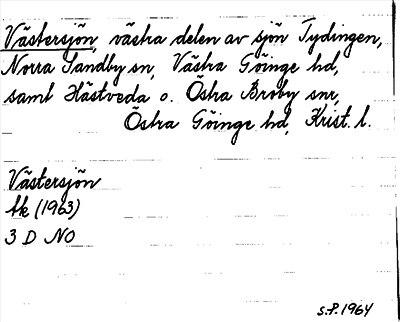 Västersjön, västra delen av sjön Tydingen,
Norra Sandby sn, Västra Göinge hd,
samt Hästveda o. Östra Broby snr,
Östra Göinge hd, Krist. l.
Västersjön
tk (1963)
3 D NO
S.P. 1964